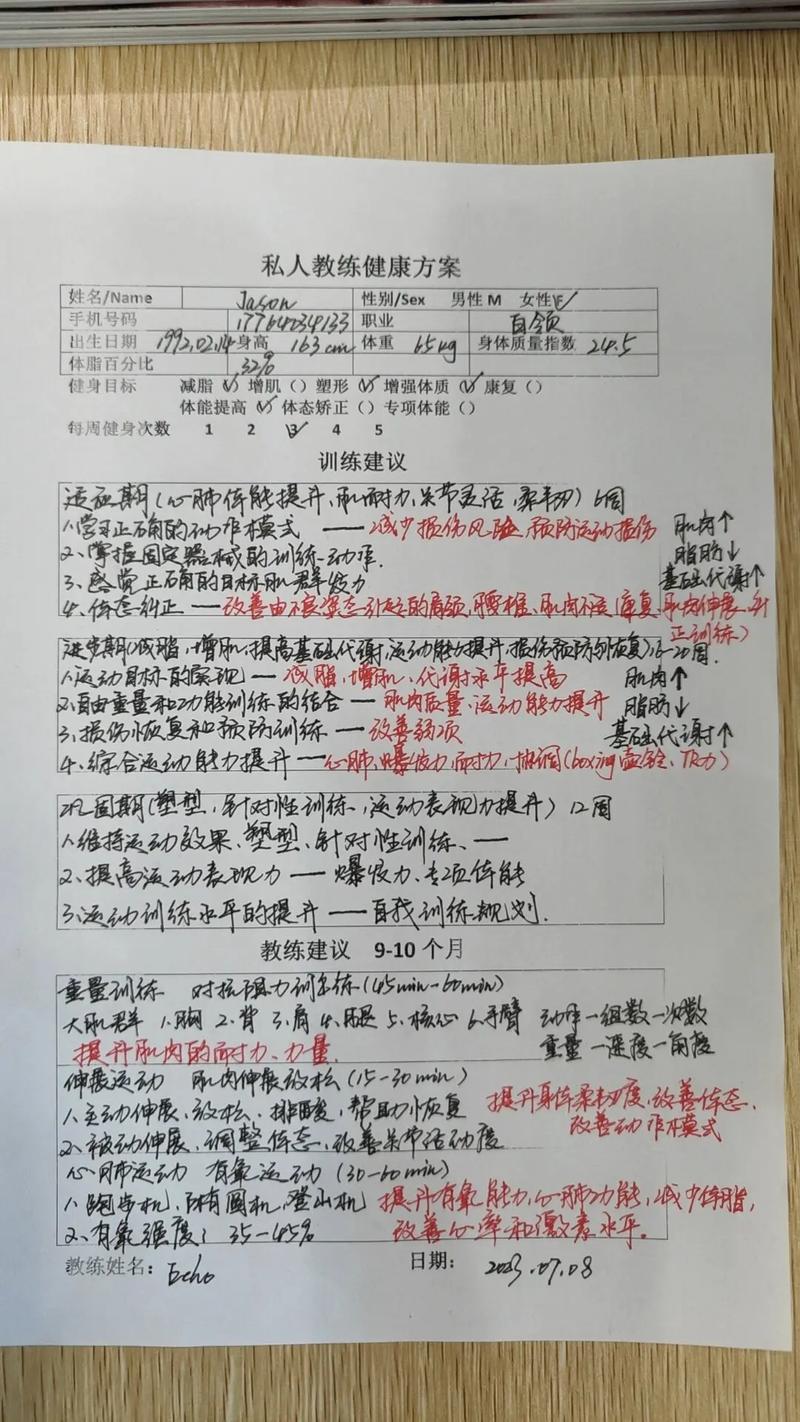 私人教练健康方案
姓名/Name Jason 性别/Sex 男性 M 女性 F✓
手机号码 17764034133 职业 白领
出生日期 1992.02.14 身高 163cm 体重 65kg 身体质量指数 24.5
体脂百分比 32%
健身目标 减脂(✓) 增肌() 塑形(✓) 增强体质(✓) 康复()
体能提高(✓) 体态矫正() 专项体能()
每周健身次数 1 2 3✓ 4 5
训练建议
适应期(心肺体能提升、肌耐力、关节灵活、柔韧) 6周
1、学习正确的动作模式 —— 减少损伤风险 预防运动损伤 肌肉↑
2、掌握固定器械的训练动作. 脂肪↓
3、感觉正确的目标肌群发力 基础代谢↑
4、体态纠正 —— 改善由不良姿态引起的肩颈、腰椎、肌肉不适(康复、肌肉伸展、纠正训练)
进步期(减脂、增肌、提高基础代谢、运动能力提升、损伤预防与恢复) 20周.
1、运动目标的实现 —— 减脂、增肌、代谢水平提高 肌肉↑
2、自由重量和功能训练的结合 —— 肌肉质量、运动能力提升 脂肪↓
3、损伤恢复和预防训练 —— 改善弱项 基础代谢↑
4、综合运动能力提升 —— 心肺、爆发力、耐力、协调(boxing 壶铃、)
巩固期(塑型、针对性训练、运动表现力提升) 12周
1、维持运动效果、塑型、针对性训练、——
2、提高运动表现力 —— 爆发力、专项体能
3、运动训练水平的提升 —— 自我训练规划.
教练建议 9-10个月
重量训练 对抗阻力训练(45min-60min)
大肌群 1、胸 2、背 3、肩 4、腿 5、核心 6、手臂 动作—组数—次数
提升肌肉的耐力、力量. 重量—深度—角度
伸展运动 肌肉伸展放松(15-30min)
1、主动伸展、放松、排酸、帮助恢复 提升身体柔韧度,改善体态,
2、被动伸展、调整体态、改善关节活动度 改善动作模式
心肺运动 有氧运动 (30-60min)
1、跑步机、椭圆机、登山机 提升有氧能力,心肺功能,减少体脂,
2、有氧强度: 35-45% 改善心率和激素水平.
教练姓名: Echo 日期: 2023.07.08